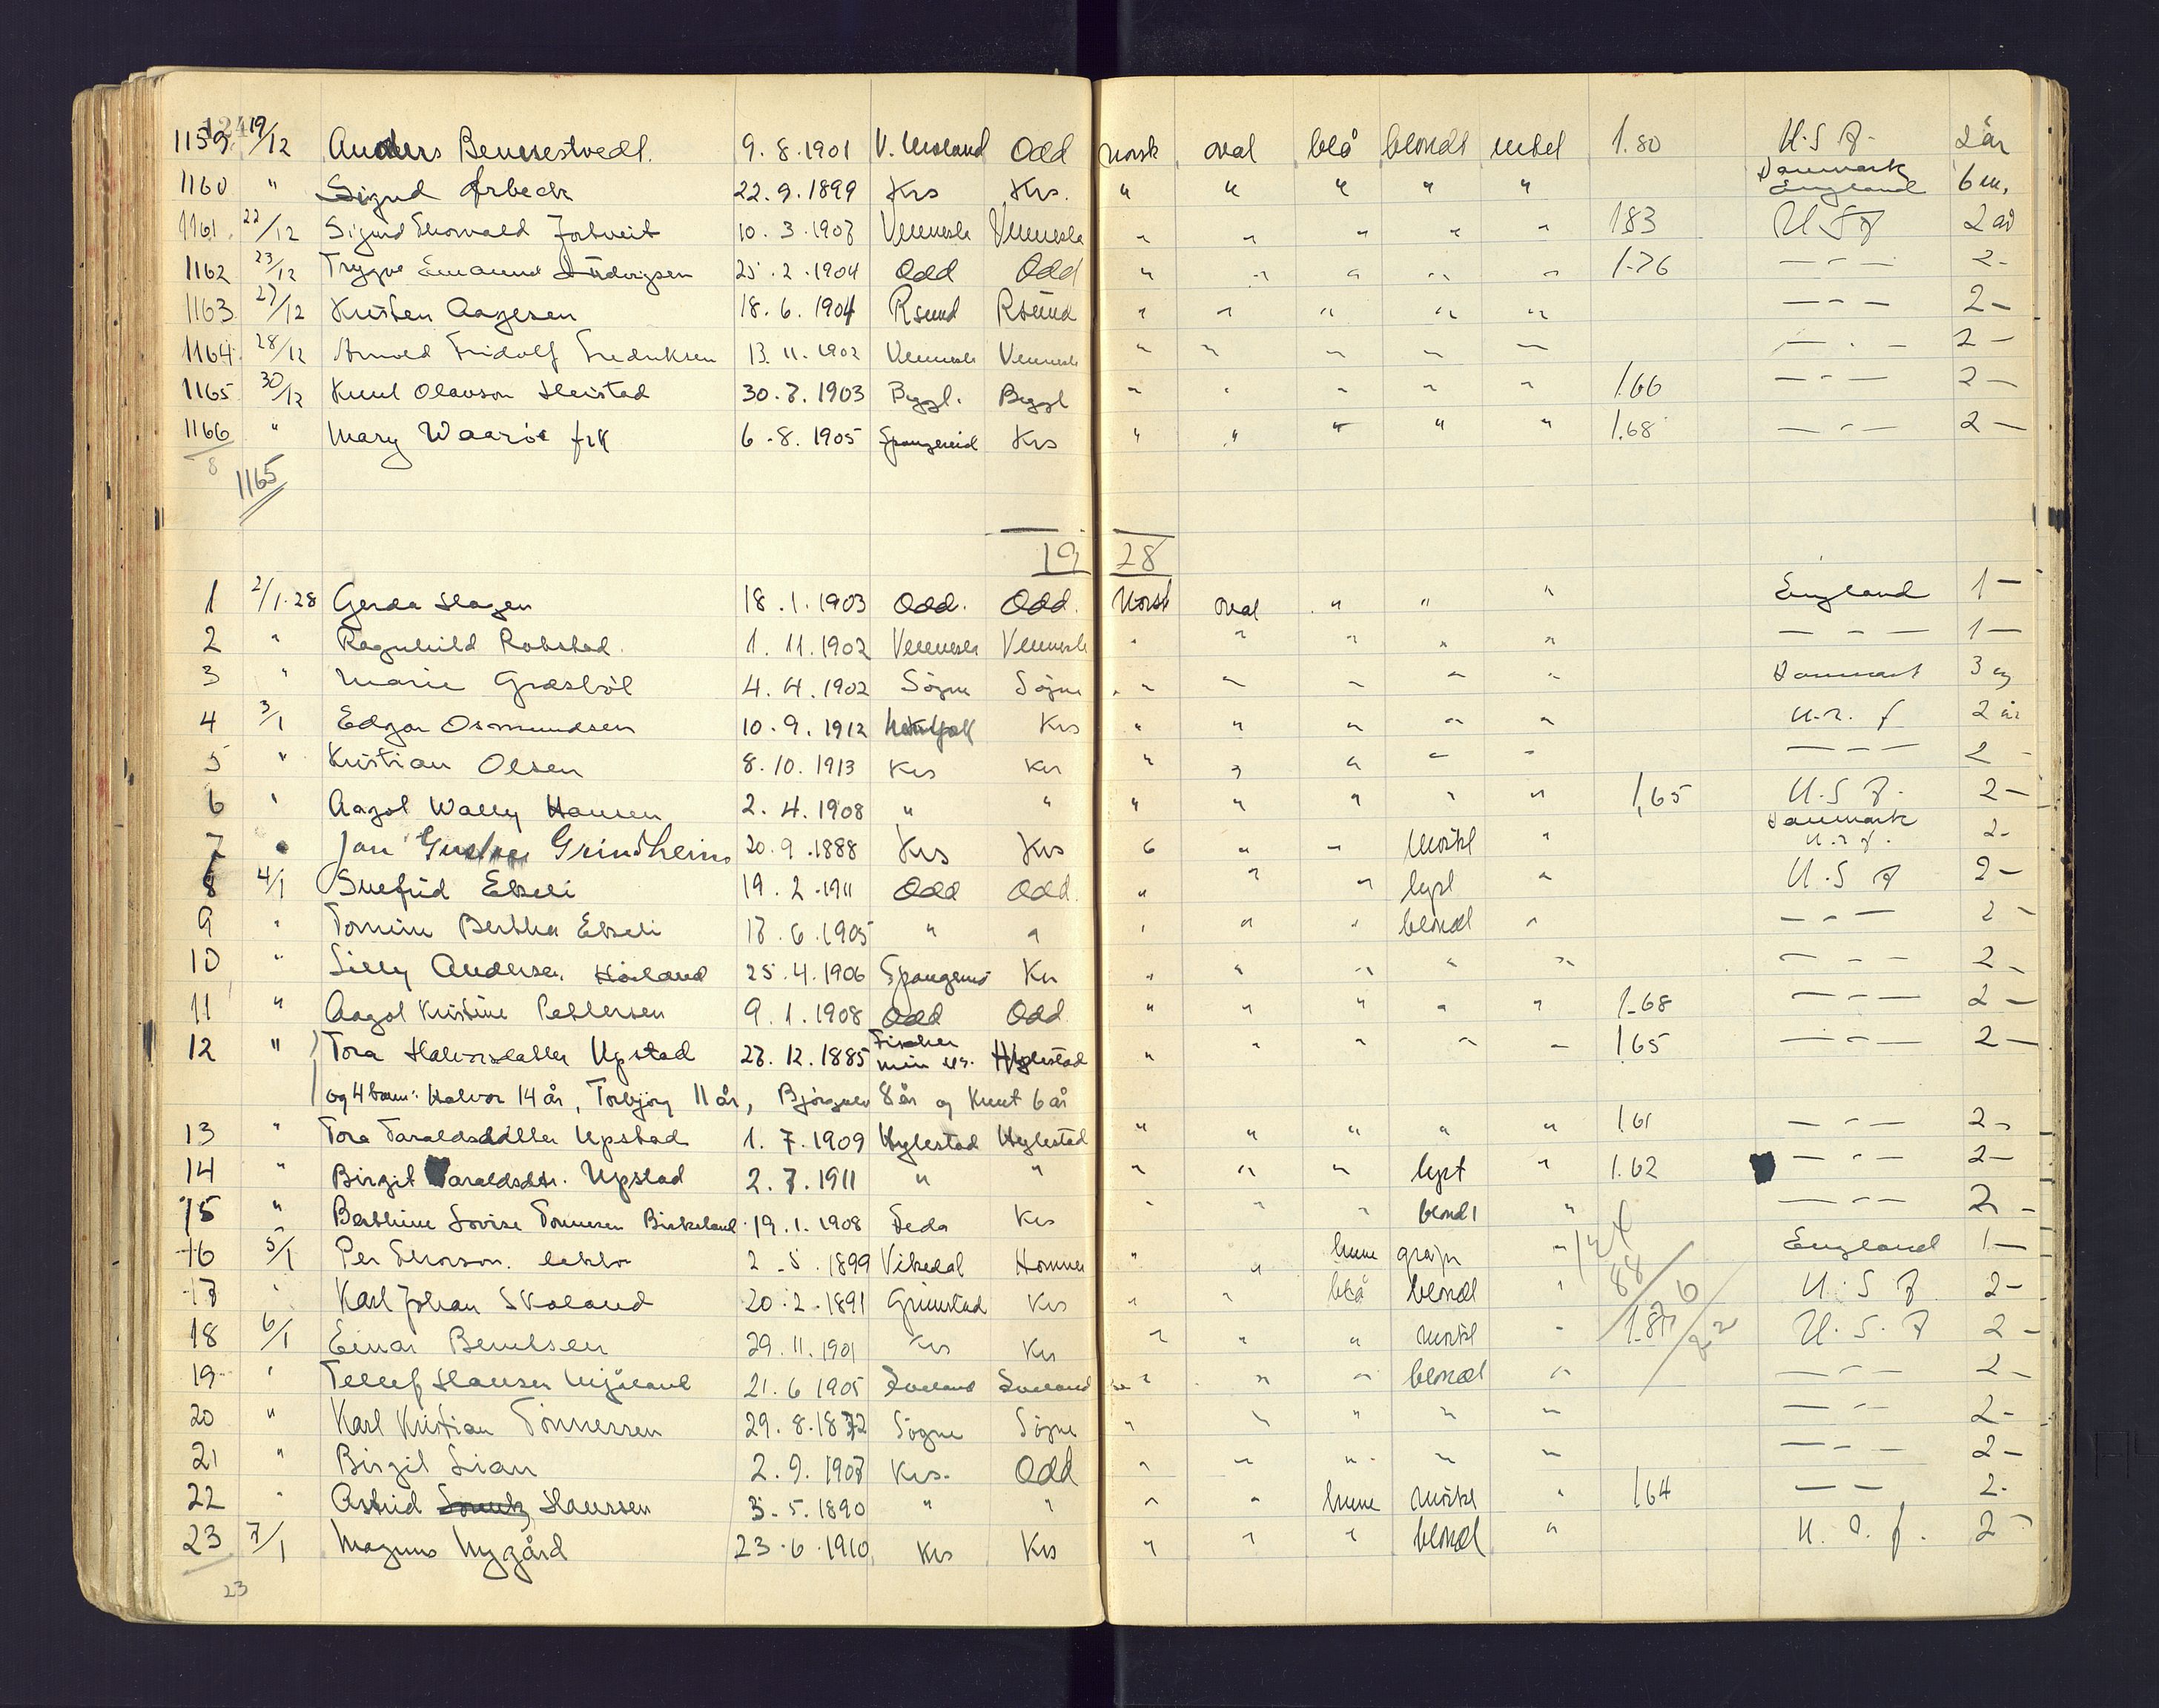 124
1159. 19/12 Anders Bennestvedt. 9.8.1901 V. Moland Odd norsk oval blå blondt enkel 1.80 U.S.A. 2 år
1160 " Sigurd Arbeck 22.9.1899 Krs Krs. " " " " " Danmark England 6 m.
1161. 22/12 Sigurd Thorvald Jortveit 10.3.1907 Vennesla Vennesla " " " " " 1.83 U S A 2 år
1162 23/12 Trygve Emanuel Ludvigsen 25.2.1904 Odd Odd " " " " " 1.76 — - — 2-
1163 27/12 Kristen Aagesen 18.6.1904 Rsund Rsund " " " " " — - — 2 —
1164 28/12 Arnold Fridolf Fredriksen 13.11.1902 Vennesla Vennesla " " " " " — - — 2 —
1165 30/12 Knut Olavson Heistad 30.7.1903 Bygl. Bygl " " " " " 1.66 — - — 2 —
1166 " Mary Waarøe frk 6.8.1905 Spangereid Krs " " " " " 1.68 — - — 2 —
8
1165
19 28
1 2/1.28 Gerda Hagen 18.1.1903 Odd. Odd. Norsk oval " " " England 1 —
2 " Ragnhild Robstad. 1.11.1902 Vennesla Vennesla " " " " " — - — 1 —
3 " Marie Græsbøl 4.4.1902 Søgne Søgne " " " " " Danmark 3
4 3/1 Edgar Osmundsen 10.9.1912 Krs " " " " " 2 år
5 " Kristian Olsen 8.10.1913 Krs Krs " " " " " — - — 2 -
6 " Aagot Wally Hansen 2.4.1908 " " " " " " " 1,65 U.S.A. 2 —
7 " Jan Gustav Grindheim 20.9.1888 Krs Krs " " " mørkt " Danmark 2-
8 4/1 Snefrid Eskeli 19.2.1911 Odd Odd. " " " lyst " U.S A 2 —
9 " Tomine Bertha Eskeli 17.6.1905 " " " " " blondt " — - — 2 -
10 " Lilly Andersen Høiland 25.4.1906 Krs " " " " " — - — 2 -
11 " Aagot Kristine Pettersen 9.1.1908 Odd Odd " " " " " 1.68 — - — 2 —
12 " Tora Halvorsdatter Upstad 27.12.1885 Fischer min us. Hylestad " " " " " 1.65 — - — 2 —
og 4 barn: Halvor 14 år, Torbjørg 11 år, 8 år og Knut 6 år
13 " Tora Taraldsdatter Upstad 1.7.1909 Hylestad Hylestad " " " " " 1.61 — - — 2 -
14 " Birgit Taraldsdtr. Upstad 2.7.1911 " " " " " lyst " 1.62 — - — 2 —
15 " Berthine Lovise Tønnesen Birkeland 19.1.1908 Feda Krs " " " blondt " — - — 2 -
16 5/1 Per Thorson. lektor 2.5.1899 Vikedal " " England 1 —
17 " Karl Johan Skaland 20.2.1891 Grimstad Krs " " blå blondt " U.S.A. 2 -
18 6/1 Einar Berntsen 29.11.1901 Krs Krs " " " mørkt " U.S.A 2 -
19 " Tellef Hansen Mjåland 21.6.1905 Iveland Iveland " " " blondt " — - — 2 -
20 " Karl Kristian Tønnessen 29.8.1872 Søgne Søgne " " " " " — - — 2 -
21 " Birgit Lian 2.9.1907 Krs. Odd " " " " " — - — 2 -
22 " Astrid Hanssen 3.5.1890 " " " " brune mørkt " 1.64 — — 2 -
23 7/1 Magnus Nygård 23.6.1910 Krs Krs " " " blondt " 2 -
23